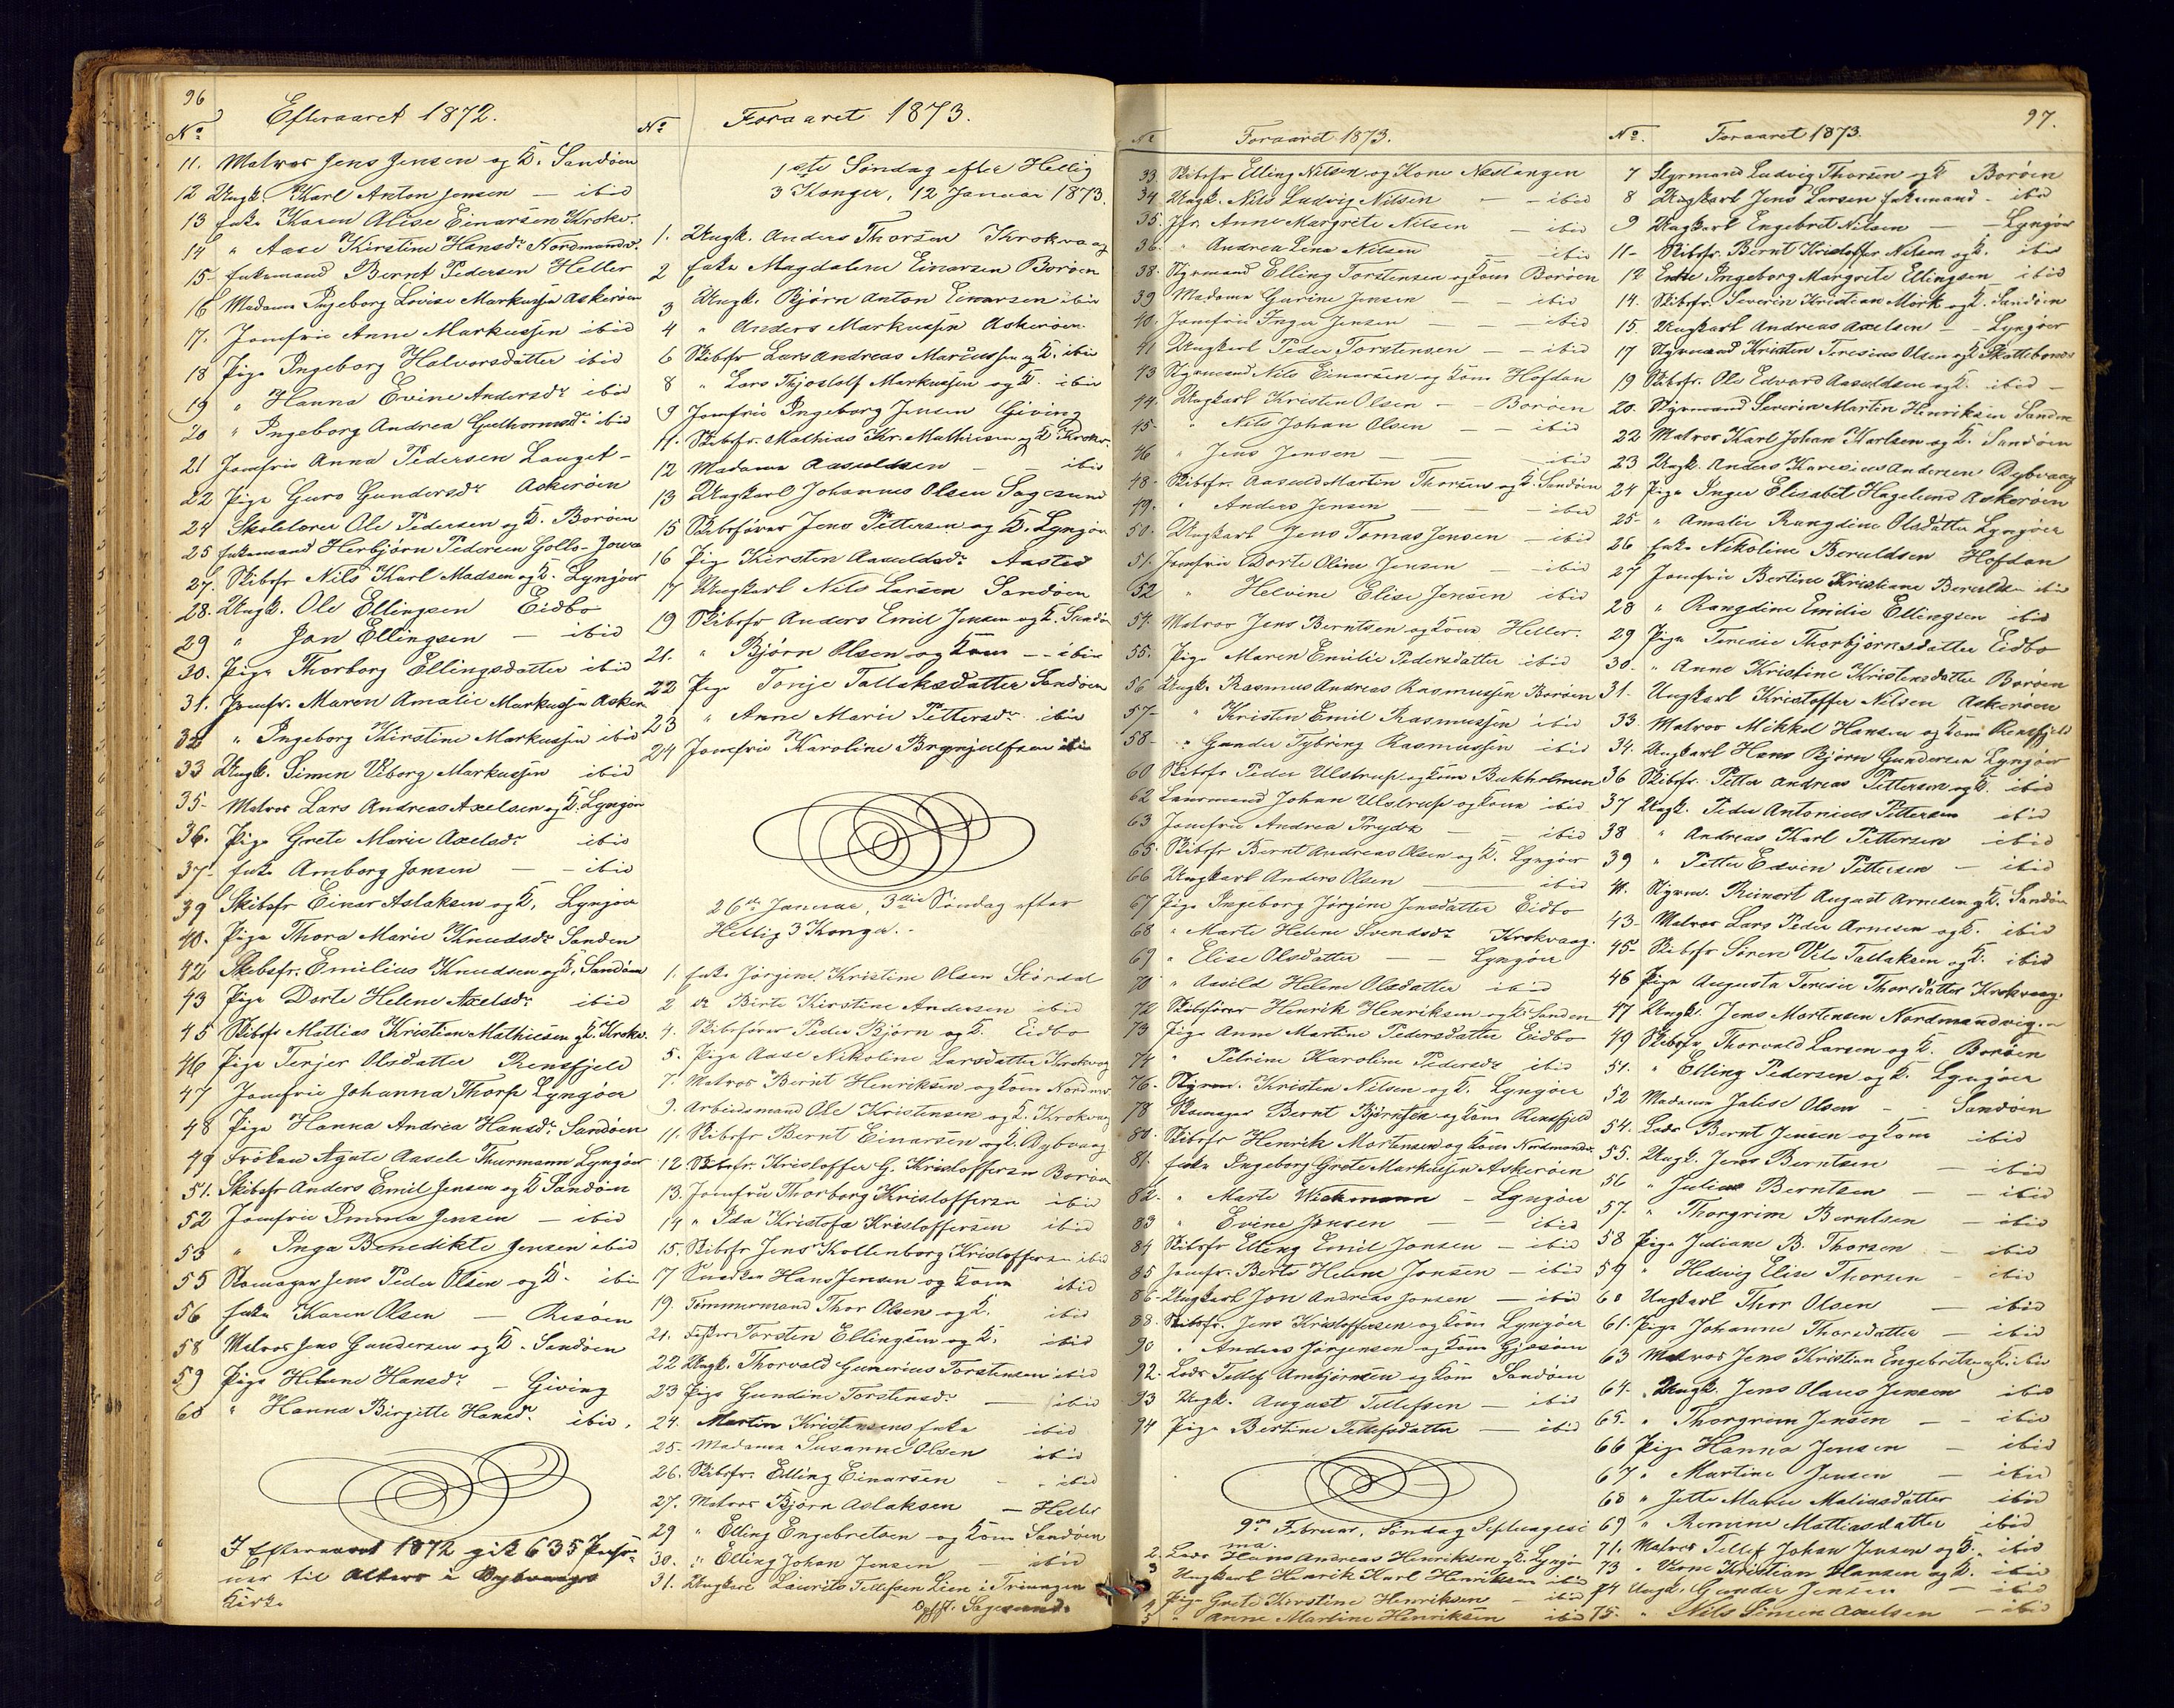 96
Efteraaret 1872.
No
11. Matros Jens Jensen og K. Sandöen
12 Ungk. Karl Anton Jensen — ibid
13 Enke Karen Alise Einarsen Krokv.
14 " Aase Kirstine Hansdr Nordmandv.
15. Enkemand Bernt Pedersen Heller
16 Madame Ingeborg Lovise Markussen Askeröen
17. Jomfrue Anne Markussen ibid
18 Pige Ingeborg Halvorsdatter ibid
19 " Hanna Evine Andersdr ibid
20 " Ingeborg Andrea Guthormsdr ibid
21 Jomfrue Anna Pedersen Lauget-
22 Pige Guro Gundersdr Askeröen
24 Skolelærer Ole Pedersen og K. Boröen
25 Enkemand Herbjörn Pedersen
27. Skibsfr Nils Karl Madsen og K. Lyngöer
28. Ungk. Ole Ellingsen Eidbo
29 " Jan Ellingsen — ibid
30. Pige Thorborg Ellingsdatter ibid
31. Jomfr. Maren Amalie Markussen Asker
32 " Ingeborg Kirstine Markussen ibid
33 Ungk. Simen Viborg Markussen ibid
35- Matros Lars Andreas Axelsen og K. Lyngör
36. Pige Grete Marie Axelsdr ibid
37- Enke Amborg Jensen — - ibid
39 Skibsfr Einar Aslaksen og K, Lyngöer
40. Pige Thora Marie Knudsdr Sanden
42 Skibsfr. Emilius Knudsen og K, Sandöen
43 Pige Dorte Helene Axelsdr ibid
45 Skibsfr Mattias Kristian Mathiesen og K. Krokv.
46 Pige Terjer Olsdatter Rensfjeld
47 Jomfrue Johanna Thorp Lyngöer
48 Pige Hanna Andrea Hansdr Sandöen
49 Fröken Agate Aasele Thurmann Lyngöer
51. Skibsfr Anders Emil Jensen og K Sandöen
52 Jomfrue Emma Jensen — ibid
53 " Inga Benedikte Jensen ibid
55 Skomager Jens Peder Olsen og K. ibid
56 Enke Karen Olsen — Risöen
58 Matros Jens Gundersen og K. Sandöen
59 Pige Helene Hansdr — Giving
60 " Hanna Birgitte Hansdr. ibid.
I Efteraaret 1872 gik 635 Perso-
ner til Alters i Dybvaags
Kirke
No
Foraaret 1873.
1ste Söndag efter Hellig
3 Konger, 12 Januar 1873.
1. Ungk. Anders Thorsen Krokvaag
2 Enke Magdalene Einarsen Boröen
3 Ungk. Björn Anton Einarsen ibid
4 " Anders Markussen Askeröen
6 Skibsfr Lars Andreas Marcussen og K. ibid
8 " Lars Thjostolf Markussen og K. ibid
9 Jomfrue Ingeborg Jensen Giving
11. Skibsfr. Mathias Kr. Mathiesen og K Krokv.
12 Madame Aasuldsen — — ibid
13 Ungkarl Johannes Olsen Sagesund
15 Skibsförer Jens Pettersen og K. Lyngör
16 Pige Kirsten Aasuldsdr Aasted
17 Ungkarl Nils Larsen Sandöen
19 Skibsfr Anders Emil Jensen og K. Sandö
21. " Björn Olsen og Kone — - ibid
22 Pige Tonje Tallaksdatter Sandöen
23 " Anne Marie Pettersdr. ibid
24 Jomfrue Karoline Brynjulfsen ibid
26de Januar, 3die Söndag efter
Hellig 3 Konger. -
1. Enke Jörgine Kristine Olsen Stördal
2 do Birte Kirstine Andersen ibid
4. Skibsförer Peder Björn og K. Eidbo
5. Pige Aase Nikoline Larsdatter Krokvaag
7. Matros Bernt Henriksen og Kone Nordmv.
9. Arbeidsmand Ole Kristensen og K. Krokvaag
11. Skibsfr Bernt Einarsen og K. Dybvaag
12 Skibsfr. Kristoffer G. Kristoffersen Boröen
13. Jomfrue Thorborg Kristoffersen ibid
14 " Ida Kristofa Kristoffersen ibid
15. Skibsfr Jens Kollenborg Kristoffersen ibid
17 Snedker Hans Jensen og Kone ibid
19. Tömmermand Thor Olsen og K. ibid
21. Fisker Torsten Ellingsen og K. ibid
22 Ungk. Thorvald Gunerius Torstensen ibid
23 Pige Gundine Torstensdr. — ibid
24. Martin Kristensens Enke ibid
25- Madame Susanne Olsen ibid
26. Skibsfr. Elling Einarsen - . ibid
27. Matros Björn Aslaksen — Heller
29 " Elling Engebretsen og Kone Sandöen
30. " Elling Johan Jensen — ibid
31. Ungkarl Laurits Tellefsen Lien i Tromögen
Opfst. Sagesund.
No
Foraaret 1873.
33. Skibsfr Elling Nilsen og Kone Næstangen
34 Ungk. Nils Ludvig Nilsen — - ibid
35. Jfr. Anne Margrete Nilsen — ibid
36- " Andrea Lena Nilsen — ibid
38. Styrmand Elling Torstensen og Kone Boröen
39 Madame Gurine Jensen — - ibid
40. Jomfrue Inger Jensen — - — ibid
41 Ungkarl Peder Torstensen — - ibid
43 Styrmand Nils Einarsen og Kone Hofdan
44. Ungkarl Kristen Olsen — - Boröen
45- " Nils Johan Olsen — - ibid
46 " Jens Jensen — — ibid
48- Skibsfr. Aasuld Martin Thorsen og K. Sandöen
49. " Anders Jensen — - ibid
50. Ungkarl Jens Tomas Jensen — ibid
51. Jomfrue Dorte Oline Jensen — ibid
52 " Helvine Elise Jensen ibid
54. Matros Jens Berntsen og Kone Heller.
55. Pige Maren Emilie Pedersdatter ibid
56 Ungk. Rasmus Andreas Rasmussen Boröen
57- " Kristen Emil Rasmussen ibid
58- " Gunder Tybring Rasmussen ibid
60 Skibsfr Peder Ulstrup og Kone Bukholmen
62 Lansmand Johan Ulstrup og Kone ibid
63 Jomfrue Andrea Prydz — - ibid
65. Skibsfr Bernt Andreas Olsen og K. Lyngöer
66 Ungkarl Anders Olsen — ibid
67 Pige Ingeborg Jörgine Jensdatter Eidbo
68 " Marte Helene Svendsdr Krokvaag.
69 " Elise Olsdatter — - Lyngöer
70 " Aasild Helene Olsdatter ibid
72 Skibsförer Henrik Henriksen og K. Sanden
73 Pige Anne Martine Pedersdatter Eidbo
74 " Petrine Karoline Pedersdr ibid
76- Styrm. Kristen Nilsen og K. Lyngöer
78 Skomager Bernt Björnsen og Kone Rensfjeld
80. Skibsfr Henrik Mortensen og Kone Nordmandv.
81. Enke Ingeborg Grete Markussen Askeröen
82. " Marte Wiekmann — Lyngöer
83 " Evine Jensen — - ibid
84 Skibsfr Elling Emil Jonsen — ibid
85 Jomfr. Berte Helene Jonsen — ibid
86- Ungkarl Jon Andreas Jonsen — ibid
88. Skibsfr. Jens Kristoffersen og Kone Lyngöer
90 " Anders Jörgensen og Kone Gjæsöen
92. Lods Tellef Arnbjörnsen og Kone Sandöen
93 Ungk. August Tellefsen — ibid
94 Pige Bertine Tellefsdatter — ibid
9de Februar, Söndag Septuagesi
ma.
2. Lods Hans Andreas Henriksen og K. Lyngör
3 Ungkarl Henrik Karl Henriksen ibid
4 Pige Grete Kirstine Henriksen — ibid
5 " Anne Martine Henriksen ibid
97.
No.
Foraaret 1873.
7 Styrmand Ludvig Thorsen og K Boröen
8 Ungkarl Jens Larsen Enkemand - ibid
9 Ungkarl Engebret Nilsen — Lyngöer
11- Skibsfr. Bernt Kristoffer Nilsen og K. ibid
12 Enke Ingeborg Margrete Ellingsen ibid
14. Skibsfr. Severin Kristian Mörk og K. Sandöen
15. Ungkarl Andreas Axelsen — - Lyngöer
17 Styrmand Kristen Teresius Olsen og K
19 Skibsfr. Ole Edvard Aasuldsen og K. ibid —
20. Styrmand Severin Martin Henriksen Sandöen
22 Matros Karl Johan Karlsen og K. Sandöen
23 Ungk. Anders Karesius Andersen Dybvaag
24 Pige Inger Elisabet Hagelund Askeröen
25- " Amalie Rangdine Olsdatter Lyngöer
26 Enke Nikoline Beruldsen Hofdan
27 Jomfrue Bertine Kristiane Beruldsen ibid
28 " Rangdine Emilie Ellingsen ibid
29 Pige Teresie Thorbjörnsdatter Eidbo
30. " Anne Kristine Kristensdatter Boröen
31. Ungkarl Kristoffer Nilsen Askeröen
33. Matros Mikkel Hansen og Kone Rensfjeld
34. Ungkarl Hans Björn Gundersen Lyngöer
36 Skibsfr. Petter Andreas Pettersen og K. ibid
37 Ungk. Peder Antonius Pettersen ibid
38 " Andreas Karl Pettersen ibid
39 " Petter Edvin Pettersen — ibid
41. Styrm. Reinert August Arnesen og K. Sandöen
43- Matros Lars Peder Arnesen og K. ibid
45- Skibsfr Sören Vilo Tallaksen og K. ibid
46 Pige Augusta Teresie Thorsdatter Krokvaag.
47 Ungk. Jens Mortensen Nordmandvigen
49 Skibsfr Thorvald Larsen og K. Boröen
51. " Elling Pedersen og K. Lyngöer
52 Madame Jalise Olsen - - Sandöen
54. Lods Bernt Jensen og Kone ibid
55. Ungk. Jens Berntsen — ibid
56 " Julius Berntsen — - ibid
57- " Thorgrim Berntsen — ibid
58 Pige Juliane B. Thorsen — ibid
59 " Hedevig Elise Thorsen — ibid
60 Ungkarl Thor Olsen — ibid
61. Pige Johanne Thorsdatter — ibid
63 Matros Jens Kristian Engebretsen og K. ibid
64- Ungk. Jens Olaus Jensen ibid
65. " Thorgrim Jensen — - ibid
66 Pige Hanna Jensen — ibid
67 " Martine Jensen — ibid
68 " Jette Marie Matiasdatter ibid
69 " Romine Mattiasdatter ibid
71. Matros Tellef Johan Jensen og K. ibid
73 " Verne Kristian Hansen og K. ibid
74 Ungk. Gunder Jensen — ibid
75. " Nils Simen Axelsen — ibid